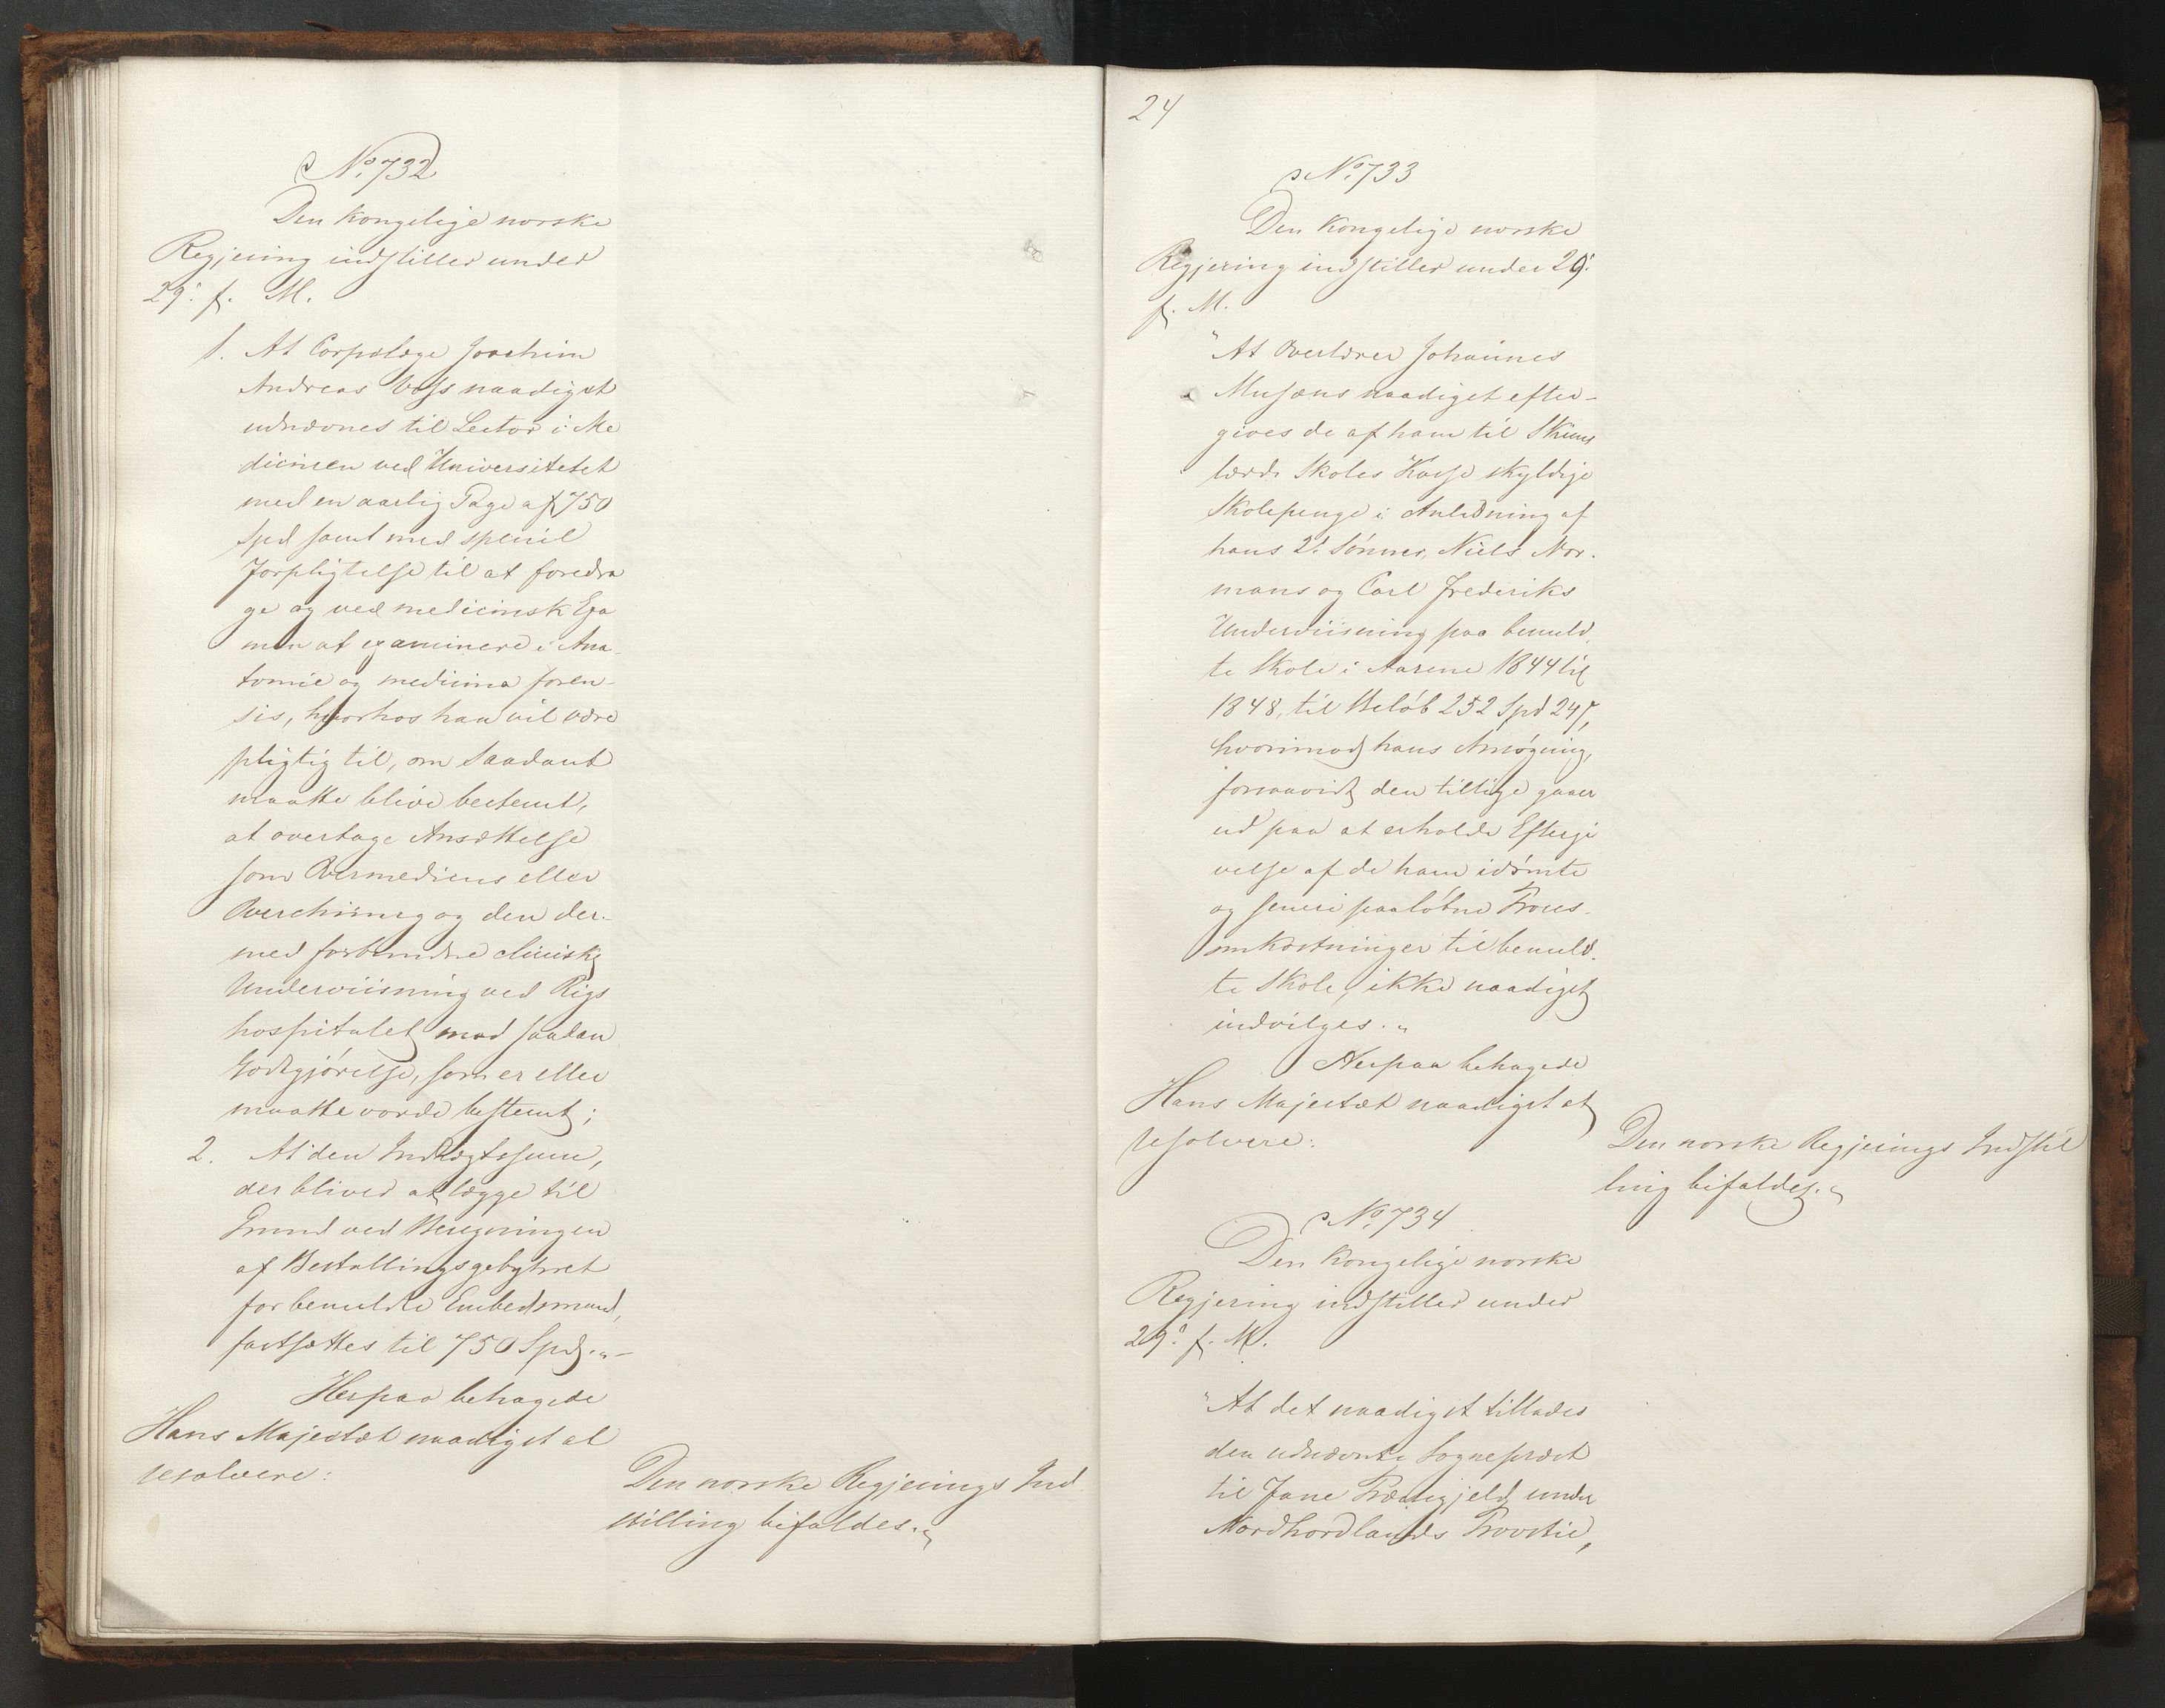 No 732
Den kongelige norske
Regjering indstiller under
29: f. M.
1. At Corpslæge Joachim
Andreas Voss naadigst
udnævnes til Lector i Me
dicinen ved Universitetet
med en aarlig Gage af 750
Spd samt med speciel
Forpligtelse til at foredra
ge og ved medicinsk Exa
men at examinere i Ana-
tomie og medicina foren-
sis, hvorhos han vil være
pligtig til, om Saadant
maatte blive bestemt,
at overtage Ansættelse
som Overmedicus eller
Overchirurg og den der-
med forbundne cliniske
Underviisning ved Rigs
hospitalet mod saadan
Godtgjørelse, som er eller
maatte vorde bestemt;
2. At den Indtægtssum,
der bliver at lægge til
Grund ved Beregningen
af Bestallingsgebyhret
for bemeldte Embedsmand,
fastsættes til 750 Spd."-
Herpaa behagede
Hans Majestæt naadigst at
resolvere:
Den norske Regjerings Ind
stilling bifaldes."
24
No 733
Den kongelige norske
Regjering indstiller under 29:
f. M.
"At Overlærer Johannes
Musæus naadigst efter-
gives de af ham til Skiens
lærde Skoles Kasse skyldige
Skolepenge i Anledning af
hans 2: Sønner, Niels Nor-
mans og Carl Frederiks
Underviisning paa bemeld-
te Skole i Aarene 1844 til
1848, til Beløb 252 Spd 24 ß,
hvorimod hans Ansøgning,
forsaavidt den tillige gaaer
ud paa at erholde Eftergi
velse af de ham idømte
og senere paaløbne Proces-
omkostninger til bemeld-
te Skole, ikke naadigst
indvilges."
Herpaa behagede
Hans Majestæt naadigst at
resolvere:
Den norske Regjerings Indstil
ling bifaldes."
No 734
Den kongelige norske
Regjering indstiller under
29: f. M.
"At det naadigst tillades
den udnævnte Sognepræst
til Fane Præstegjeld under
Nordhordlands Provstie,